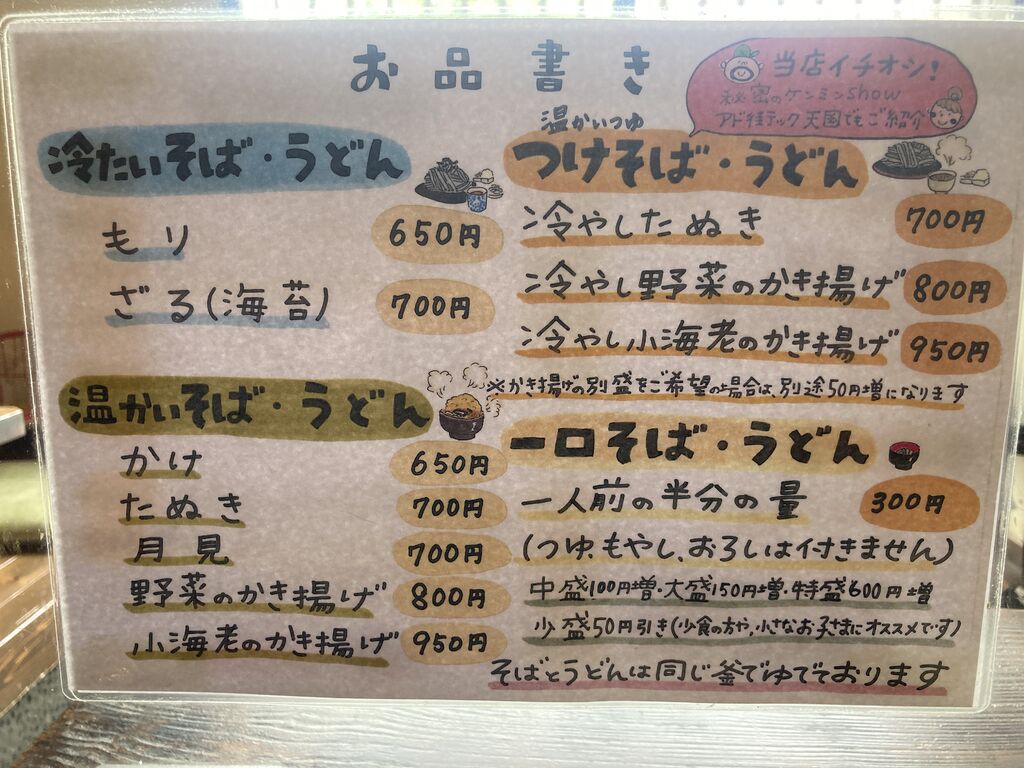 お品書き
当店イチオシ!
秘密のケンミンshow
アド街テック天国でもご紹介
冷たいそば・うどん
もり 650円
ざる(海苔) 700円
温かいそば・うどん
かけ 650円
たぬき 700円
月見 700円
野菜のかき揚げ 800円
小海老のかき揚げ 950円
温かいつゆ
つけそば・うどん
冷やしたぬき 700円
冷やし野菜のかき揚げ 800円
冷やし小海老のかき揚げ 950円
※かき揚げの別盛をご希望の場合は、別途50円増になります
一口そば・うどん
一人前の半分の量 300円
(つゆ、もやし、おろしは付きません)
中盛100円増・大盛150円増・特盛600円増
少盛50円引き(少食の方や、小さなお子さまにオススメです)
そばとうどんは同じ釜でゆでております